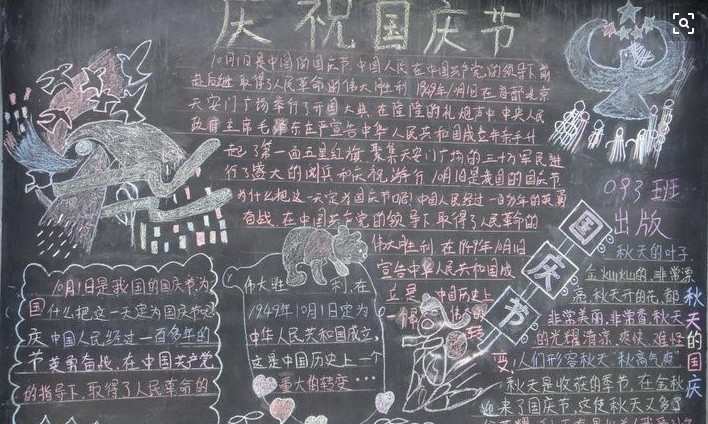 庆祝国庆节
10月1日是中国的国庆节,中国人民在中国共产党的领导下前
赴后继 取得了人民革命的伟大胜利 1949年10月1日在首都北京
天安门广场举行了开国大典,在隆隆的礼炮声中 中央人民
政府主席毛泽东庄严宣告中华人民共和国成立并亲手升
起了第一面五星红旗 聚集天安门广场的三十万军民进
行了盛大的阅兵和庆祝游行 10月1日是我国的国庆节
为什么把这一天定为国庆节呢?中国人民经过一百多年的英勇
奋战,在中国共产党的领导下取得了人民革命的
伟大胜利 在1949年10月1日
宣告中华人民共和国成
立是 中国历史上
一個
093班
出版
国庆节
10月1日是我国的国庆节,为
国什么把这一天定为国庆节呢
庆中国人民经过一百多年的
节英勇奋战,在中国共产党
的指导下,取得了人民革命的
伟大胜 利,在
1949年10月1日定为
中华人民共和国成立,
这是中国历史上一个
重大的转变…
秋天的国庆
秋天的叶子,
金 的,非常漂
亮,秋天开的花,都
非常美丽,非常香,秋天
的光耀,清凉,爽快,难怪
变,人们形容秋天"秋高气爽"
秋天是收获的季节,在金秋
来了国庆节,这使秋天又多了